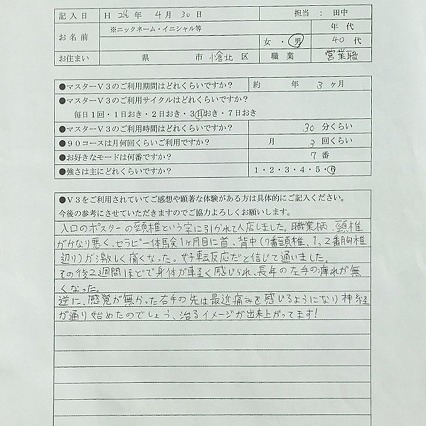 記入日 H 28年 4月 30日 担当：田中
お名前 ※ニックネーム・イニシャル等 年代
女・男 40代
お住まい 県 市 北区 職業 営業職
●マスターV3のご利用期間はどれくらいですか？ 約 年 3ヶ月
●マスターV3のご利用サイクルはどれくらいですか？
毎日1回・1日おき・2日おき・3日おき・7日おき
●マスターV3のご利用時間はどれくらいですか？ 30分くらい
●90コースは月何回くらいご利用ですか？ 月 3回くらい
●お好きなモードは何番ですか？ 7番
●強さは主にどれくらいですか？ 1・2・3・4・5・6
●V3をご利用されていてご感想や顕著な体験がある方は具体的にご記入ください。
今後の参考にさせていただきますのでご協力よろしくお願いします。
入口のポスターの頸椎という字に引かれて入店しました。職業柄、頸椎
がかなり悪く、セラピー体験1ヶ月目に首、背中(7番頸椎、1、2番胸椎
辺り)が激しく痛くなった。好転反応だと信じて通いました。
その後2週間ほどで身体が軽く感じられ、長年の左手の痺れが無
くなった。
逆に、感覚が無かった右手の先は最近痛みを感じるようになり神経
が通り始めたのでしょう、治るイメージが出来上がってます！